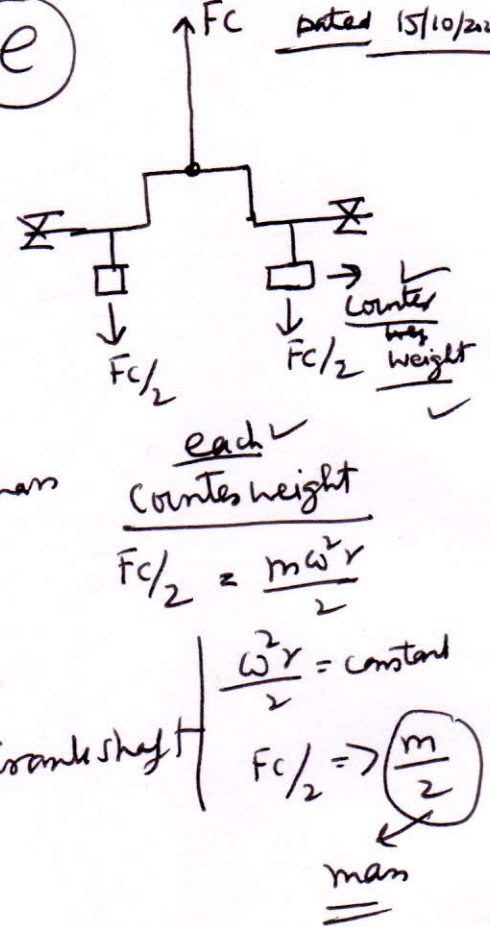 e
FC
Dated 15/10/202
FC/2
FC/2
counter
weight
each
Counterweight
FC/2 = mω²r/2
ω²r/2 = constant
crankshaft
FC/2 => m/2
mass